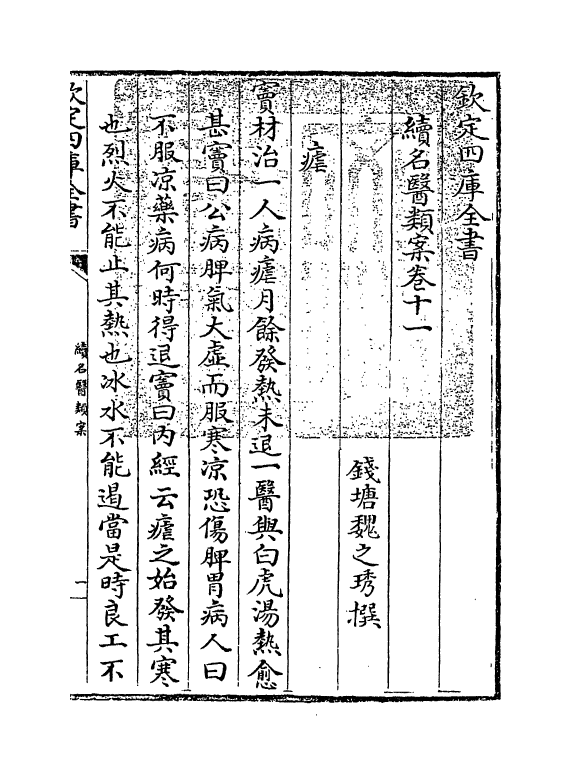 欽定四庫全書
續名醫類案卷十一
錢塘魏之琇撰
瘧
竇材治一人病瘧月餘發熱未退一醫與白虎湯熱愈
甚竇曰公病脾氣大虛而服寒涼恐傷脾胃病人曰
不服涼藥病何時得退竇曰內經云瘧之始發其寒
也烈火不能止其熱也冰水不能遏當是時良工不
欽定四庫全書
續名醫類案
一